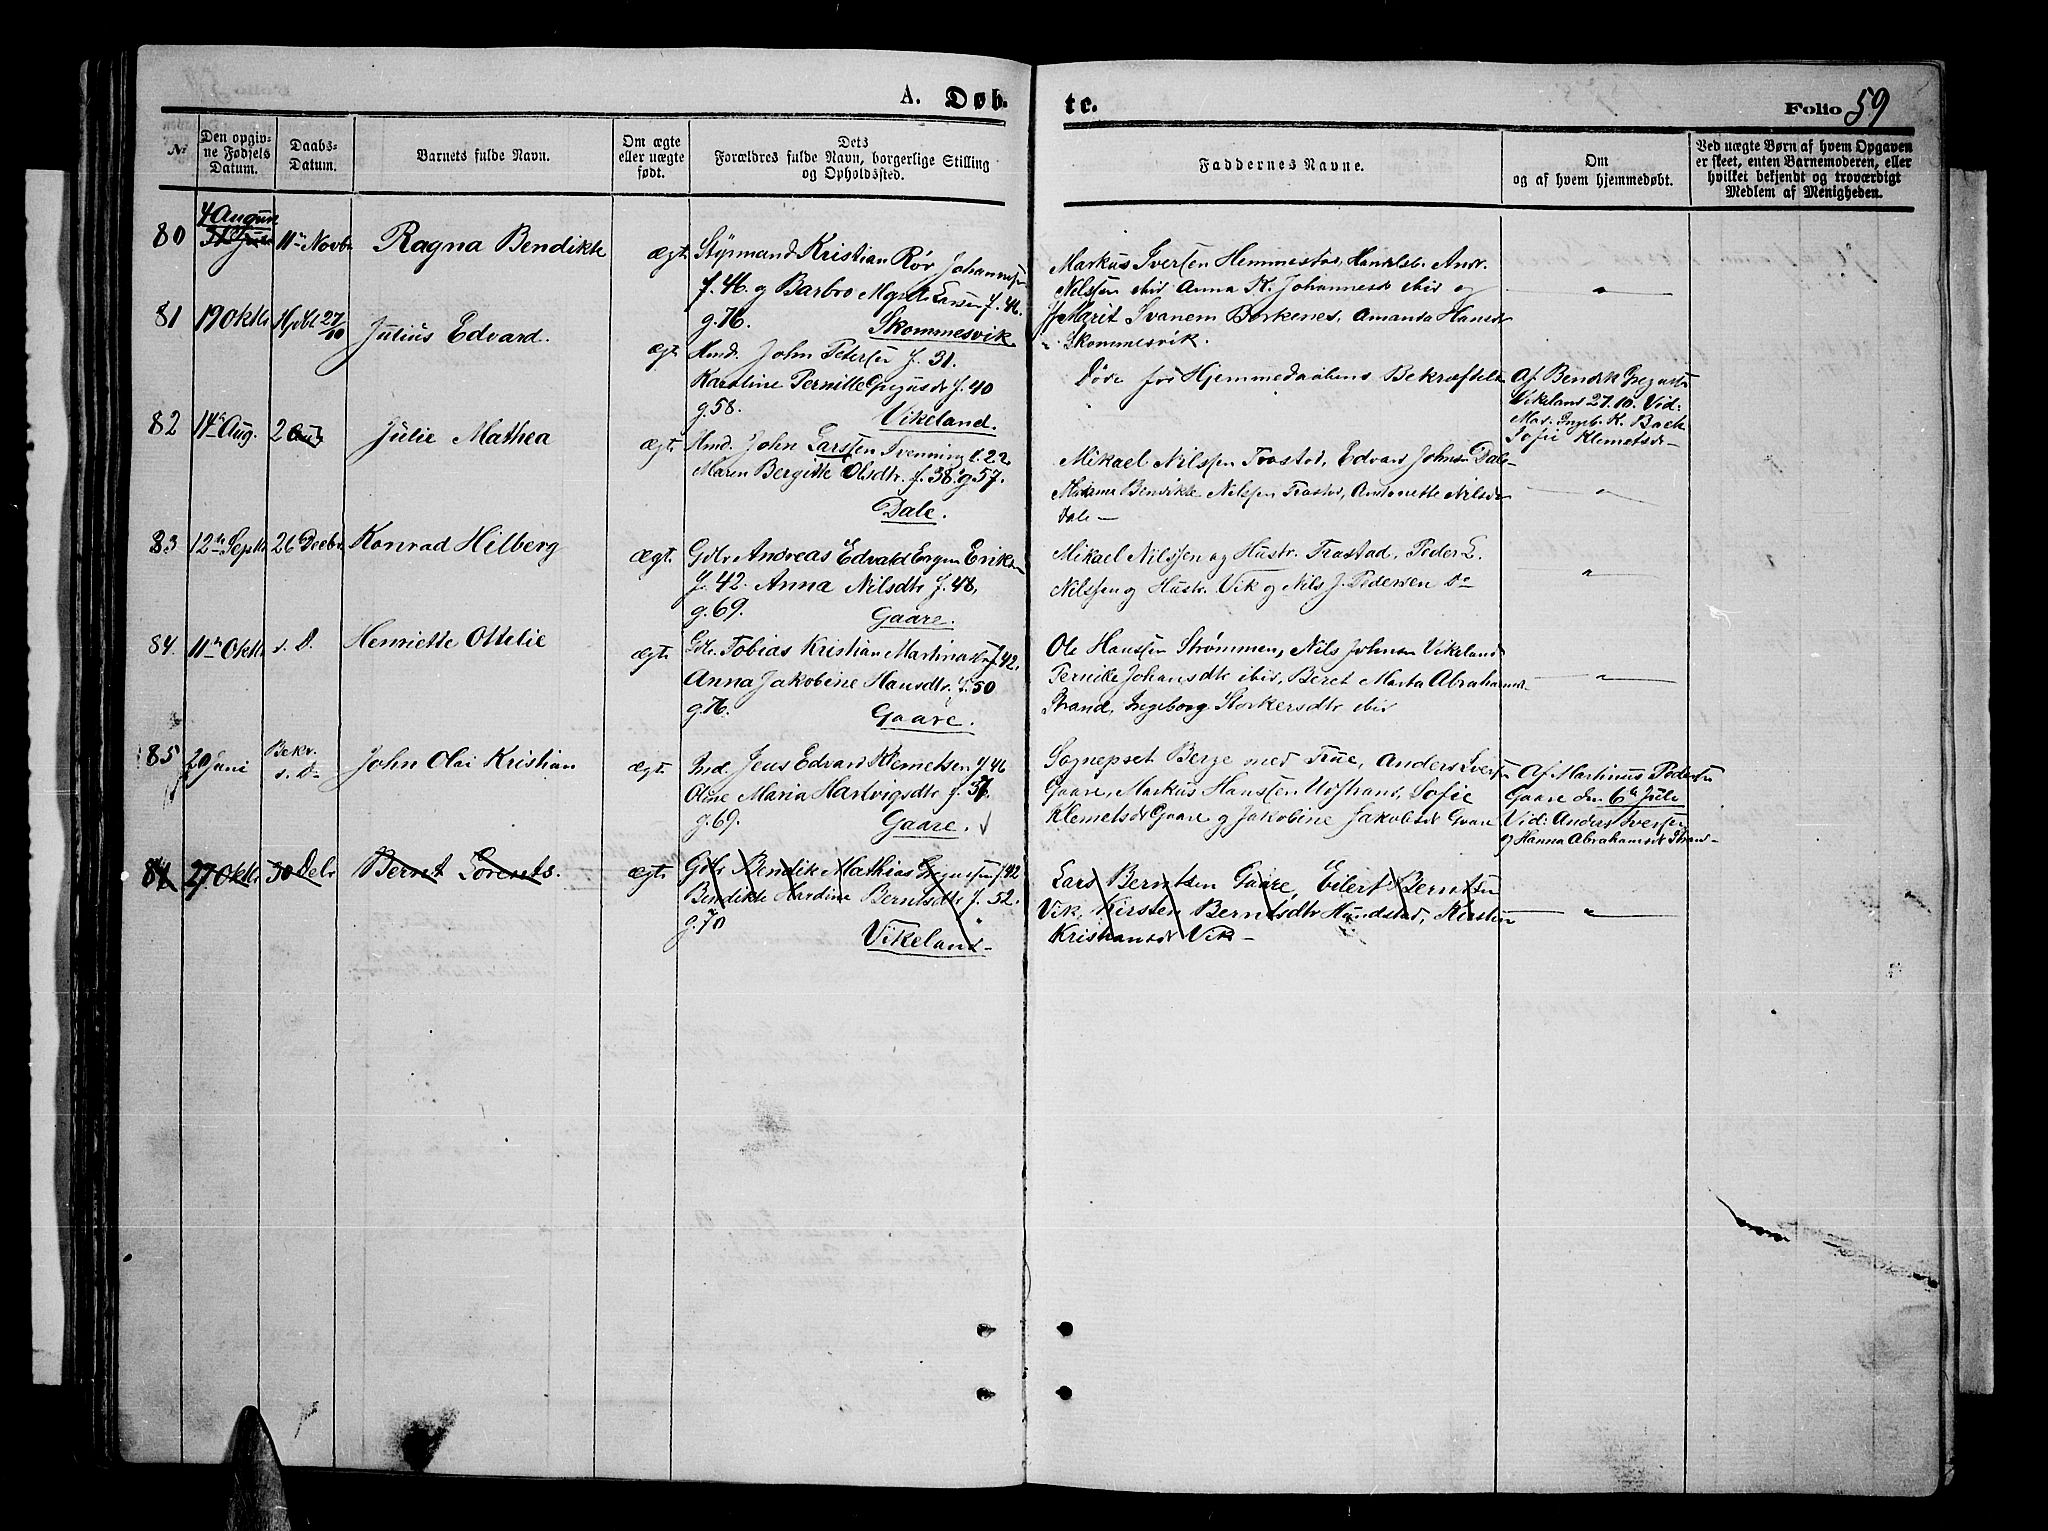 A. Døb-
te.
Folio 59
No
Den opgiv-
ne Fødsels
Datum.
Daabs-
Datum.
Barnets fulde Navn.
Om ægte
eller uægte
født.
Dets
Forældres fulde Navn, borgerlige Stilling
og Opholdssted.
Faddernes Navne.
Om
og af hvem hjemmedøbt.
Ved uægte Børn af hvem Opgaven
er skeet, enten Barnemoderen, eller
hvilket bekjendt og troværdigt
Medlem af Menigheden.
80
4 August
11te Novbr
Ragna Bendikte
ægt.
Styrmand Kristian Rør Johannesen
f. 46 og Barbro Larsen f. 46.
g. 76. Skommesvik
Markus Iversen Hemmestad, Handelsb. Andr.
Nilssen ibid Anna K. Johannesd ibid og
Marit Svanem Borkenes, Amanda Hansdr
Skommesvik.
"
81
19 Oktbr
Hjdbt 27/10
Julius Edvard.
ægt.
Hmd. John Petersen f. 31.
Karoline Pernille Gregusdr f. 40
g. 58. Vikeland.
Døde før Hjemmedaabens Bekræftelse
Af Bendik Gregusen
Vikeland 27.10. Vid:
Mad. Ingb. K. Back
Sofie Klemetsd-
82
14de Aug.
2
Julie Mathea
ægt.
Hmd. John Larssen Trenning f. 22
Maren Bergitte Olsdtr. f. 38. g 57.
Dale.
Mikael Nilssen Trastad, Edvard Johnsen Dale
Bendikte Nilssen Trastad, Antonette Nilsdr
Dale -
"
83
12te Septbr
26 Decbr
Konrad Hilberg
ægt.
Gdbr Andreas Edvald Eriksen
f. 42. Anna Nilsdtr f. 48,
g. 69. Gaare.
Mikael Nilssen og Hustr. Trastad, Peder E.
Nilssen og Hustr. Vik og Nils J. Pedersen do
"
84.
11te Oktbr
s. D.
Henriette Ottelie
ægt.
Gdbr. Tobias Kristian f. 42.
Anna Jakobine Hansdtr. f. 50
g. 76. Gaare.
Ole Hanssen Strømmen, Nils Johnsen Vikeland
Pernille Johansdtr ibid, Beret Marta Abrahamsd
Strand, Ingeborg Storkersdtr ibid
"
85
20 Juni
Bekr.
s. D-
John Olai Kristian
ægt.
Ind. Jens Edvard Klemetsen f. 46
Oline Maria Hartvigsdtr f. 37.
g. 69. Gaare.
Sogneprst Berge med Frue, Anders Iversen
Gaare, Markus Hanssen, Sofie
Klemetsd Gaare og Jakobine Jakobsd Gaare
Af Martinus Pedersen
Gaare den 6te Juli
Vid: Anders Iversen
og Hanna Abrahamsd Strand-
84
27 Oktbr
30 Debr
Berret Lorents.
ægt.
Gdbr Bendik Mathias Gregussen f. 42
Bendikte Hardine Berntsdtr f. 52.
g. 70 Vikeland-
Lars Berntsen Gaare, Eilert Berntsen
Vik, Kirsten Berntsdtr Hundstad, Kirsten
Kristiansd Vik-
"